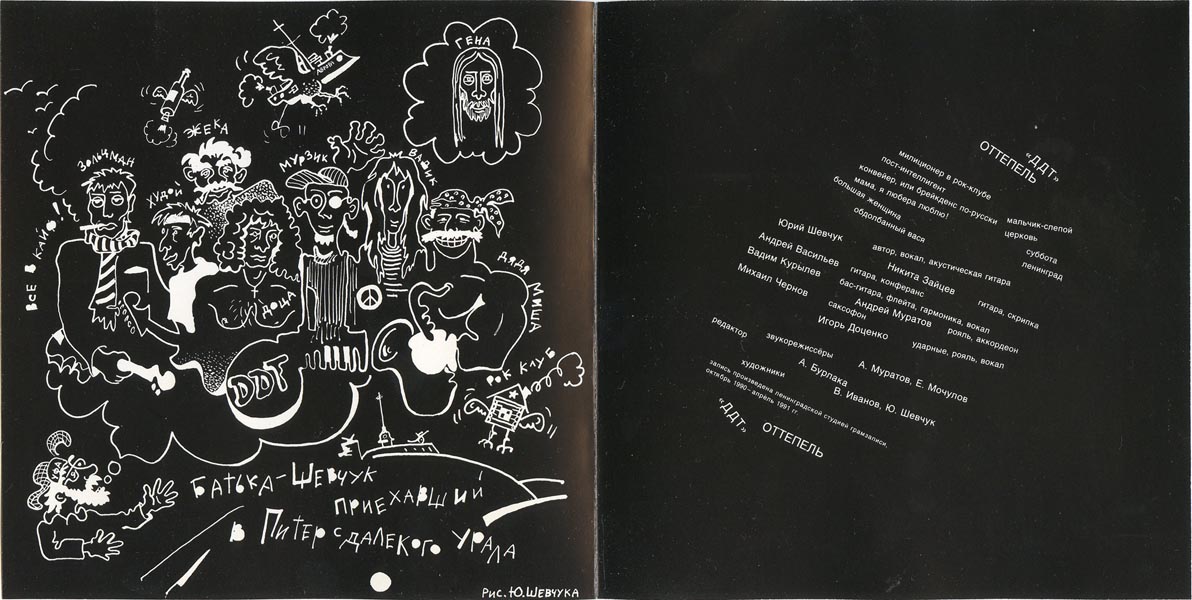 ГЕНА
АВРОРА
ЖЕКА
ЗОЛЬЦМАН
МУРЗИК
ВАДИК
ХУДОЙ
ВСЕ В КАЙФ!
ДОЦА
ДЯДЯ МИША
DDT
РОК КЛУБ
БАТЬКА-ШЕВЧУК
ПРИЕХАВШИЙ
В ПИТЕР С ДАЛЕКОГО УРАЛА
РИС. Ю. ШЕВЧУКА
«ДДТ»
ОТТЕПЕЛЬ
милиционер в рок-клубе
пост-интеллигент
конвейер, или брейкденс по-русски
мама, я любера люблю!
большая женщина
ободолбанный вася
мальчик-слепой
церковь
суббота
ленинград
Юрий Шевчук автор, вокал, акустическая гитара
Никита Зайцев гитара, скрипка
Андрей Васильев гитара, конферанс
Вадим Курылев бас-гитара, флейта, гармоника, вокал
Андрей Муратов рояль, аккордеон
Михаил Чернов саксофон
Игорь Доценко ударные, рояль, вокал
звукорежиссёры А. Муратов, Е. Мочулов
редактор А. Бурлака
художники В. Иванов, Ю. Шевчук
запись произведена ленинградской студией грамзаписи,
октябрь 1990 – апрель 1991 гг.
«ДДТ»
ОТТЕПЕЛЬ